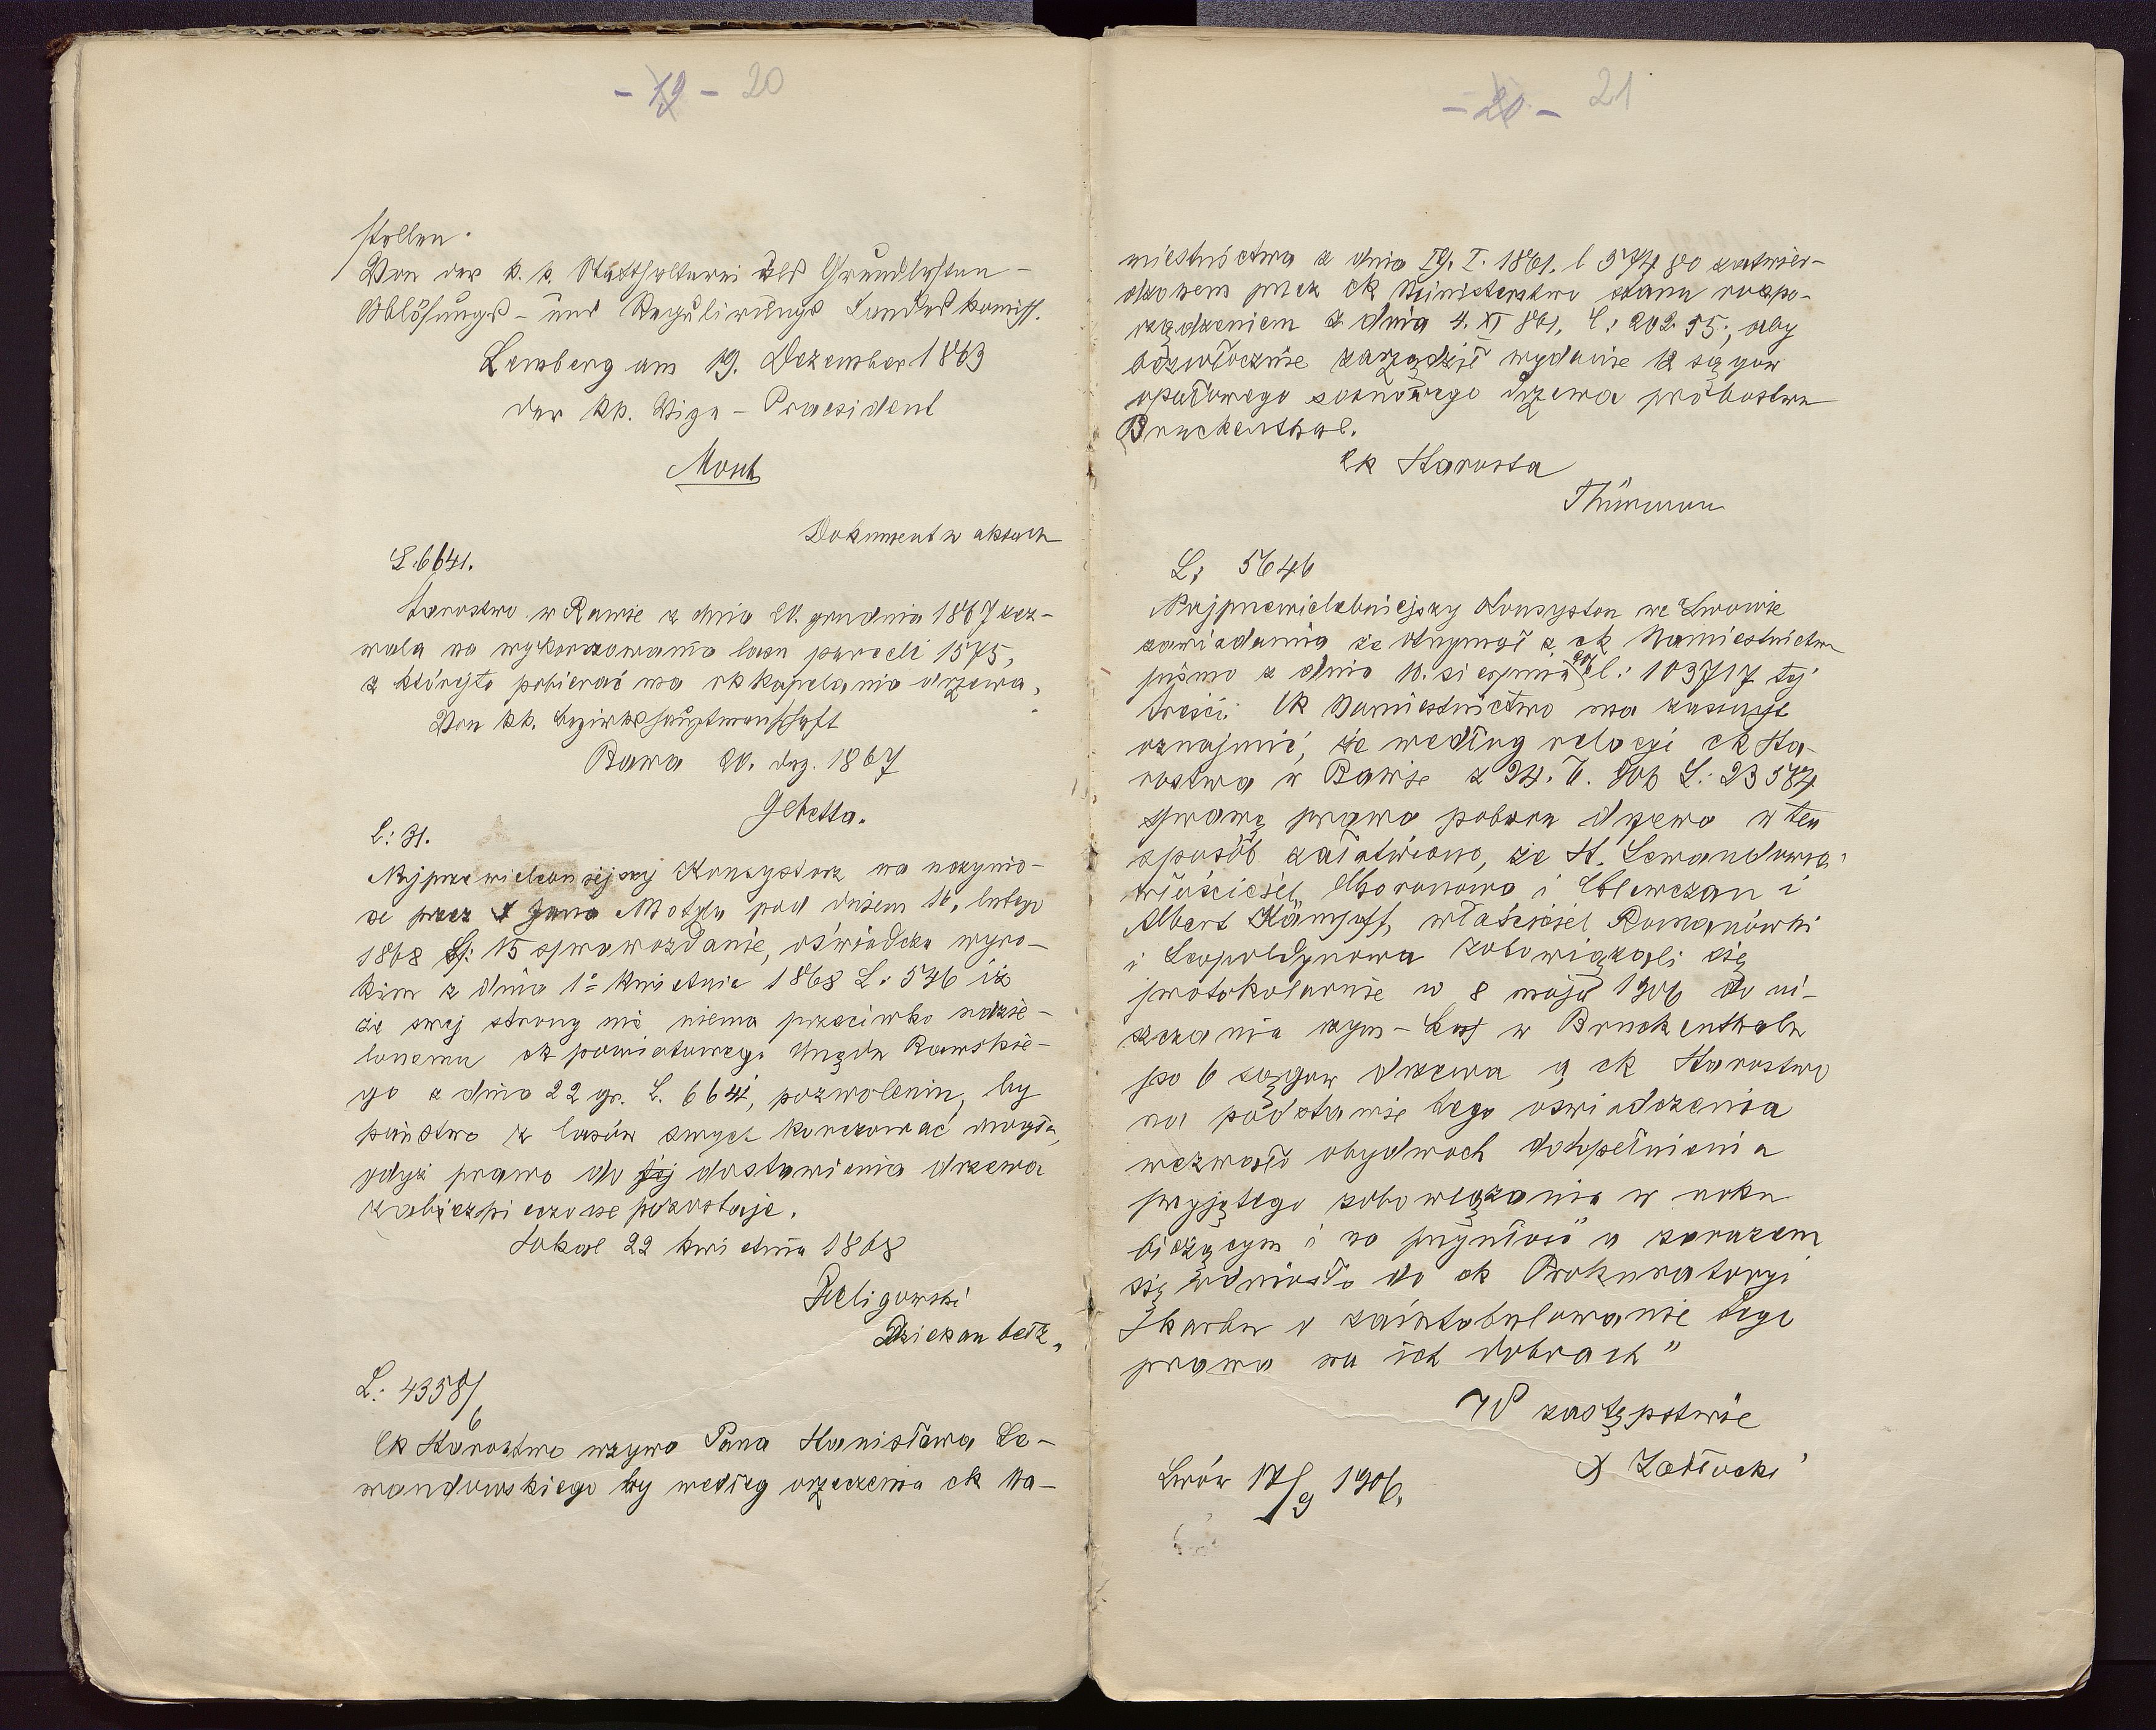 - 19 - 20
stellen.
Von der k. k. Statthalterei als Grundlasten-
Ablösungs- und Regulirungs Landes komiss.
Lemberg am 19. Dezember 1863
der kk. Vize - Praesident
Mosch
Dokument w aktach
L. 6641.
Starostwo w Rawie z dnia 20. grudnia 1867 zez-
wala na wykorczowania lasu parceli 1575,
z którejto pobierać ma rk kapelania drzewa.
Von kk. bezirkshauptmanschaft
Rawa 20. dez. 1867
L: 31.
Najprzewielebniejszy Konsystorz na uczynio-
ne przez X Jana Motyla pod dniem 16. lutego
1868 L: 15 sprawozdanie, oświadcza wyro-
kim z dnia 1o kwietnia 1868 L: 546 iż
ze swej strony nic niema przeciwko udzie-
lonemu ck powiatowego Urzędu Rawskie-
go z dnia 22 gr. L. 6641, pozwoleniu, by
państwo z lasów swych korczować mogło,
gdyż prawo do tej dostawienia drzewa
zabiezpieczone pozostaje.
Sokal 22 kwietnia 1868
Żeligowski
Dziekan bełz.
L: 4358/6
Ck Starostwo wzywa Pana Stanisława Le-
wandowskiego by według orzeczenia ck Na-
- 20 - 21
miestnictwa z dnia 19. I. 1861. l 57480 zatwier-
dzonem przez ck Ministerstwo stanu rozpo-
rządzeniem z dnia 4. XI 861. L: 202 55; aby
bezwłocznie zarządził wydanie 12 sągów
opałowego sosnowego drzewa probostwu
Bruckenthal.
Ck Starosta
Thürman
L: 5646
Najprzewielebniejszy Konsystorz we Lwowie
zawiadamia że otrzymał z ck Namiestnictwa
pismo z dnia 10. sierpnia l: 103717 tej
treści: Ck Namiestnictwo ma zaszczyt
oznajmić, że według relacyi ck Sta-
rostwa w Rawie z 24. 7. 906 L: 23587
sprawę prawa poboru drzewa w ten
sposób załatwiono, że St. Lewandowski
właściciel Choronowa i Chlewczan i
Albert Kämpff, właściciel Romanówki
i Leopoldynowa zobowiązali się
protokolarnie w 8 maju 1906 do ui-
szczania rzym-kat w Bruckenthalu
po 6 sągow drzewa a ck Starostwo
na podstawie tego oswiadczenia
wezwało obydwoch do dopełnienia
przyjętego zobowiązania w roku
bieżącym i na przyszłość a zarazem
się udniosło do ck Prokuratoryi
Skarbu o zaintabulowanie tego
prawa na ich dobrach"
W zastępstwie
X Zabłocki
Lwów 17/9 1906.